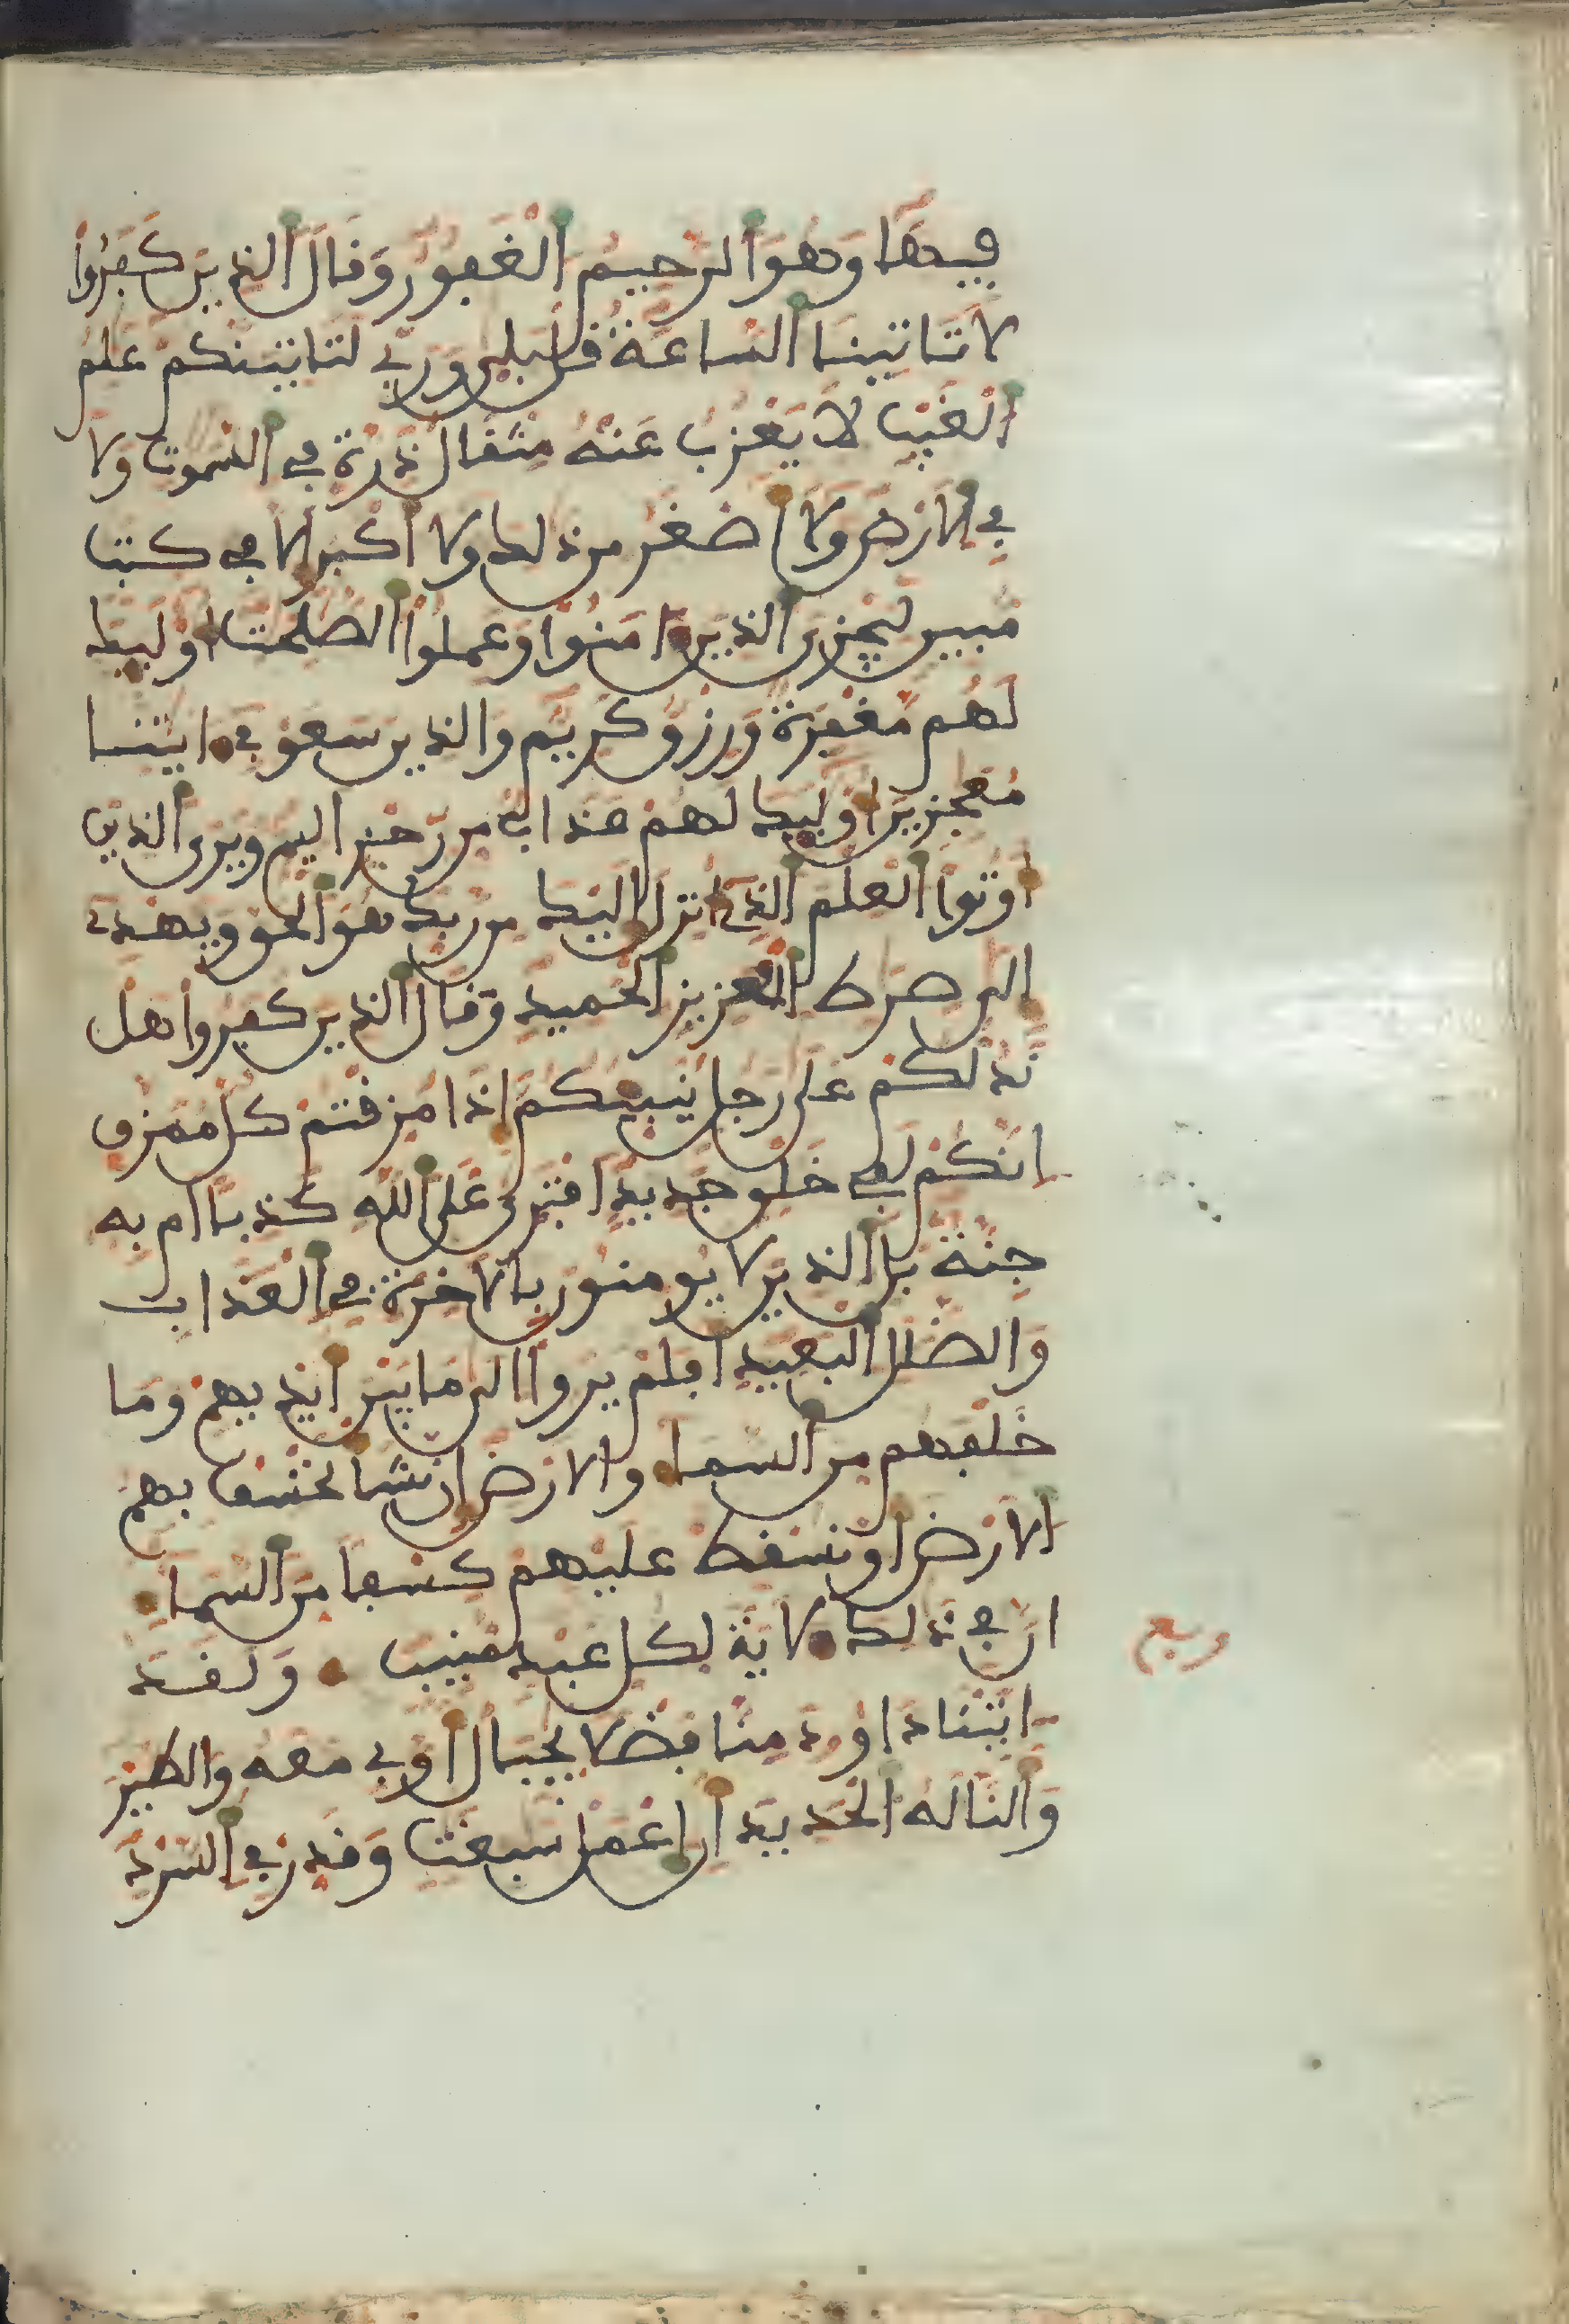 فيها وهو الرحيم الغفور وقال الذين كفروا
لا تاتينا الساعة قل بلى وربي لتاتينكم علم
الغيب لا يعزب عنه مثقال ذرة في السموت ولا
في الارض ولا أصغر من ذلك ولا أكبر الا في كتب
مبين ليجزي الذين امنوا وعملوا الصلحت اوليك
لهم مغفرة ورزق كريم والذين سعو في ايتنا
معجزين اوليك لهم عذاب من رجز اليم ويرى الذين
اوتوا العلم الذي انزل اليك من ربك هو الحق ويهدي
الى صرط العزيز الحميد وقال الذين كفروا هل
ندلكم على رجل ينبيكم اذا مزقتم كل ممزق
انكم لفي خلق جديد افترى على الله كذبا ام به
جنة بل الذين لا يومنون بالاخرة في العذاب
والضلل البعيد افلم يروا الى ما بين أيديهم وما
خلفهم من السما والارض ان نشا نخسف بهم
الارض او نسقط عليهم كسفا من السما
ان في ذلك لاية لكل عبد منيب ولقد
اتينا داود منا فضلا يجبال أوبي معه والطير
والنا له الحديد أن اعمل سبغت وقدر في السرد
ربع